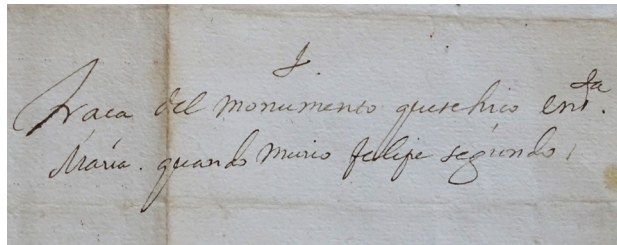 Traca del monumento que se hico en Sta.
María. quando murio felipe segundo